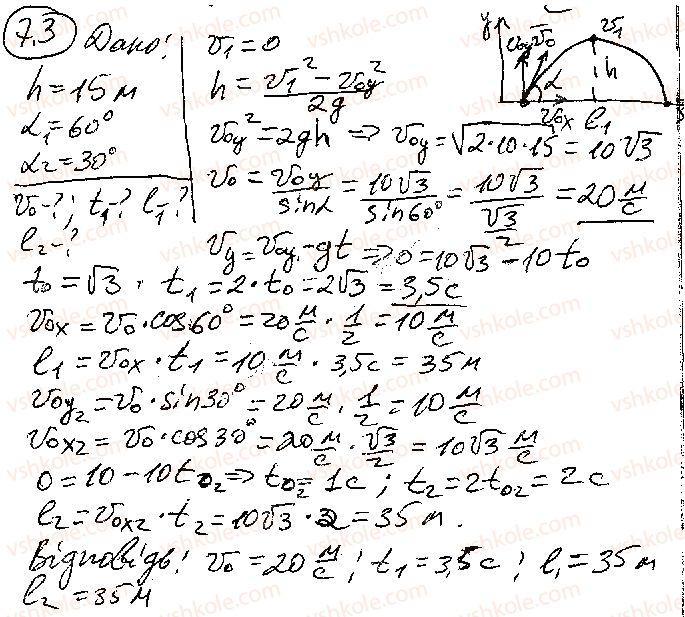 7.3 Дано:
h = 15 м
α₁ = 60°
α₂ = 30°
v₀ - ?; t₁ - ? l₁ - ?
l₂ - ?
v₁ = 0
h = (v₁² - v₀y²)/2g
v₀y² = 2gh => v₀y = √(2·10·15) = 10√3
v₀ = v₀y/sinα = 10√3/sin60° = 10√3/(√3/2) = 20 м/с
vy = v₀y - gt => 0 = 10√3 - 10t₀
y v₀y v₀ v₁
α h
v₀x l₁
t₀ = √3, t₁ = 2·t₀ = 2√3 = 3,5 с
v₀x = v₀·cos60° = 20 м/с · 1/2 = 10 м/с
l₁ = v₀x·t₁ = 10 м/с · 3,5 с = 35 м
v₀y₂ = v₀·sin30° = 20 м/с · 1/2 = 10 м/с
v₀x₂ = v₀·cos30° = 20 м/с · √3/2 = 10√3 м/с
0 = 10 - 10t₀₂ => t₀₂ = 1с; t₂ = 2t₀₂ = 2 с
l₂ = v₀x₂·t₂ = 10√3·2 = 35 м.
Відповідь: v₀ = 20 м/с; t₁ = 3,5 с; l₁ = 35 м
l₂ = 35 м